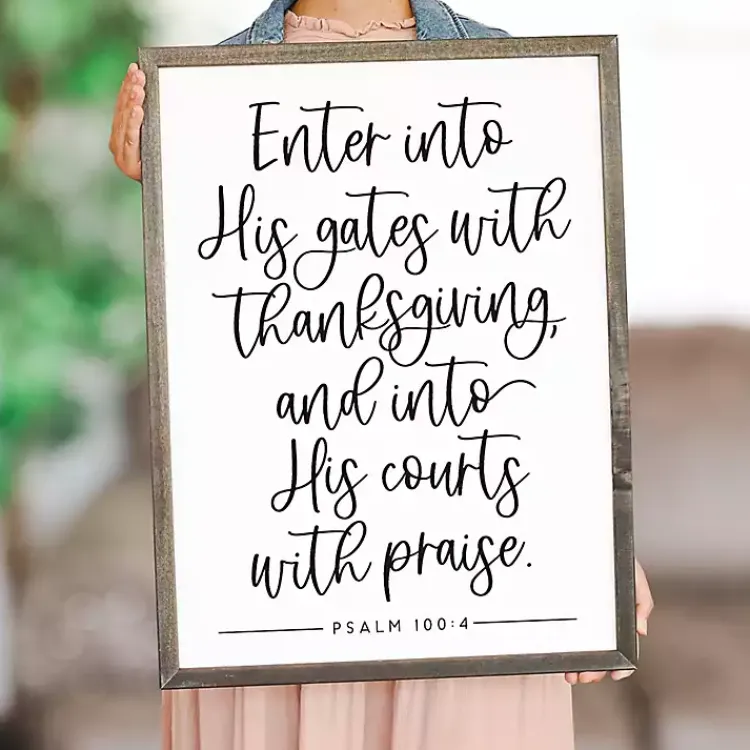 Enter into
His gates with
thanksgiving,
and into
His courts
with praise.
PSALM 100:4